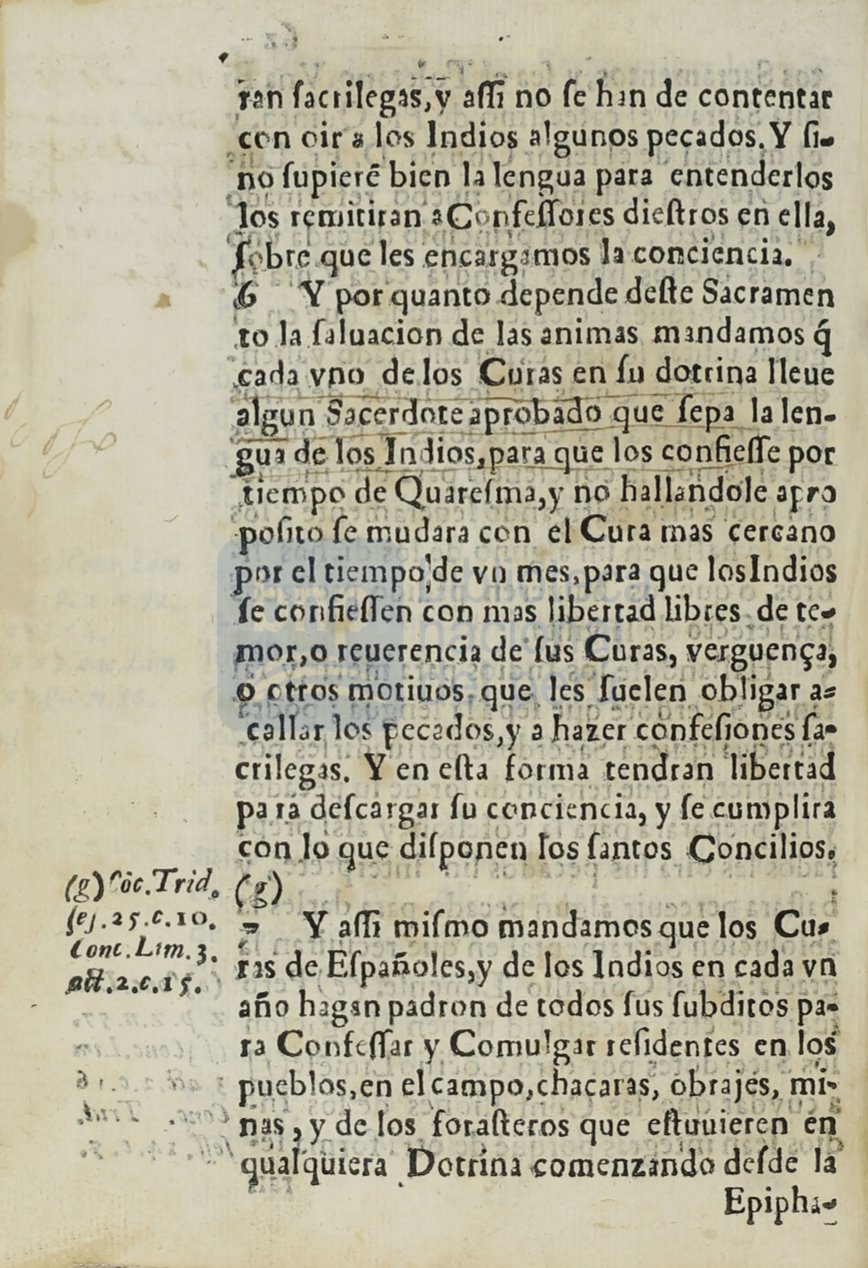 ran ſacrilegas, y aſſi no ſe han de contentar
con oir a los Indios algunos pecados. Y ſi-
no ſupierẽ bien la lengua para entenderlos
los remitiran a Confeſſores dieſtros en ella,
ſobre que les encargamos la conciencia.
6 Y por quanto depende deſte Sacramen
to la ſaluacion de las animas mandamos q̃
cada vno de los Curas en ſu dotrina lleue
algun Sacerdote aprobado que ſepa la len-
gua de los Indios, para que los confieſſe por
tiempo de Quareſma, y no hallandole apro
poſito ſe mudara con el Cura mas cercano
por el tiempo de vn mes, para que los Indios
ſe confieſſen con mas libertad libres de te-
mor, o reuerencia de ſus Curas, verguença,
o otros motiuos que les ſuelen obligar a-
callar los pecados, y a hazer confeſiones ſa-
crilegas. Y en eſta forma tendran libertad
para deſcargar ſu conciencia, y ſe cumplira
con lo que diſponen los ſantos Concilios.
(g)
(g) Cõc. Trid.
ſeſ. 25. c. 10.
Conc. Lim. 3.
act. 2. c. 15.
7 Y aſſi miſmo mandamos que los Cu-
ras de Eſpañoles, y de los Indios en cada vn
año hagan padron de todos ſus ſubditos pa-
ra Confeſſar y Comulgar reſidentes en los
pueblos, en el campo, chacaras, obrajes, mi-
nas, y de los foraſteros que eſtuuieren en
qualquiera Dotrina comenzando deſde la
Epipha-